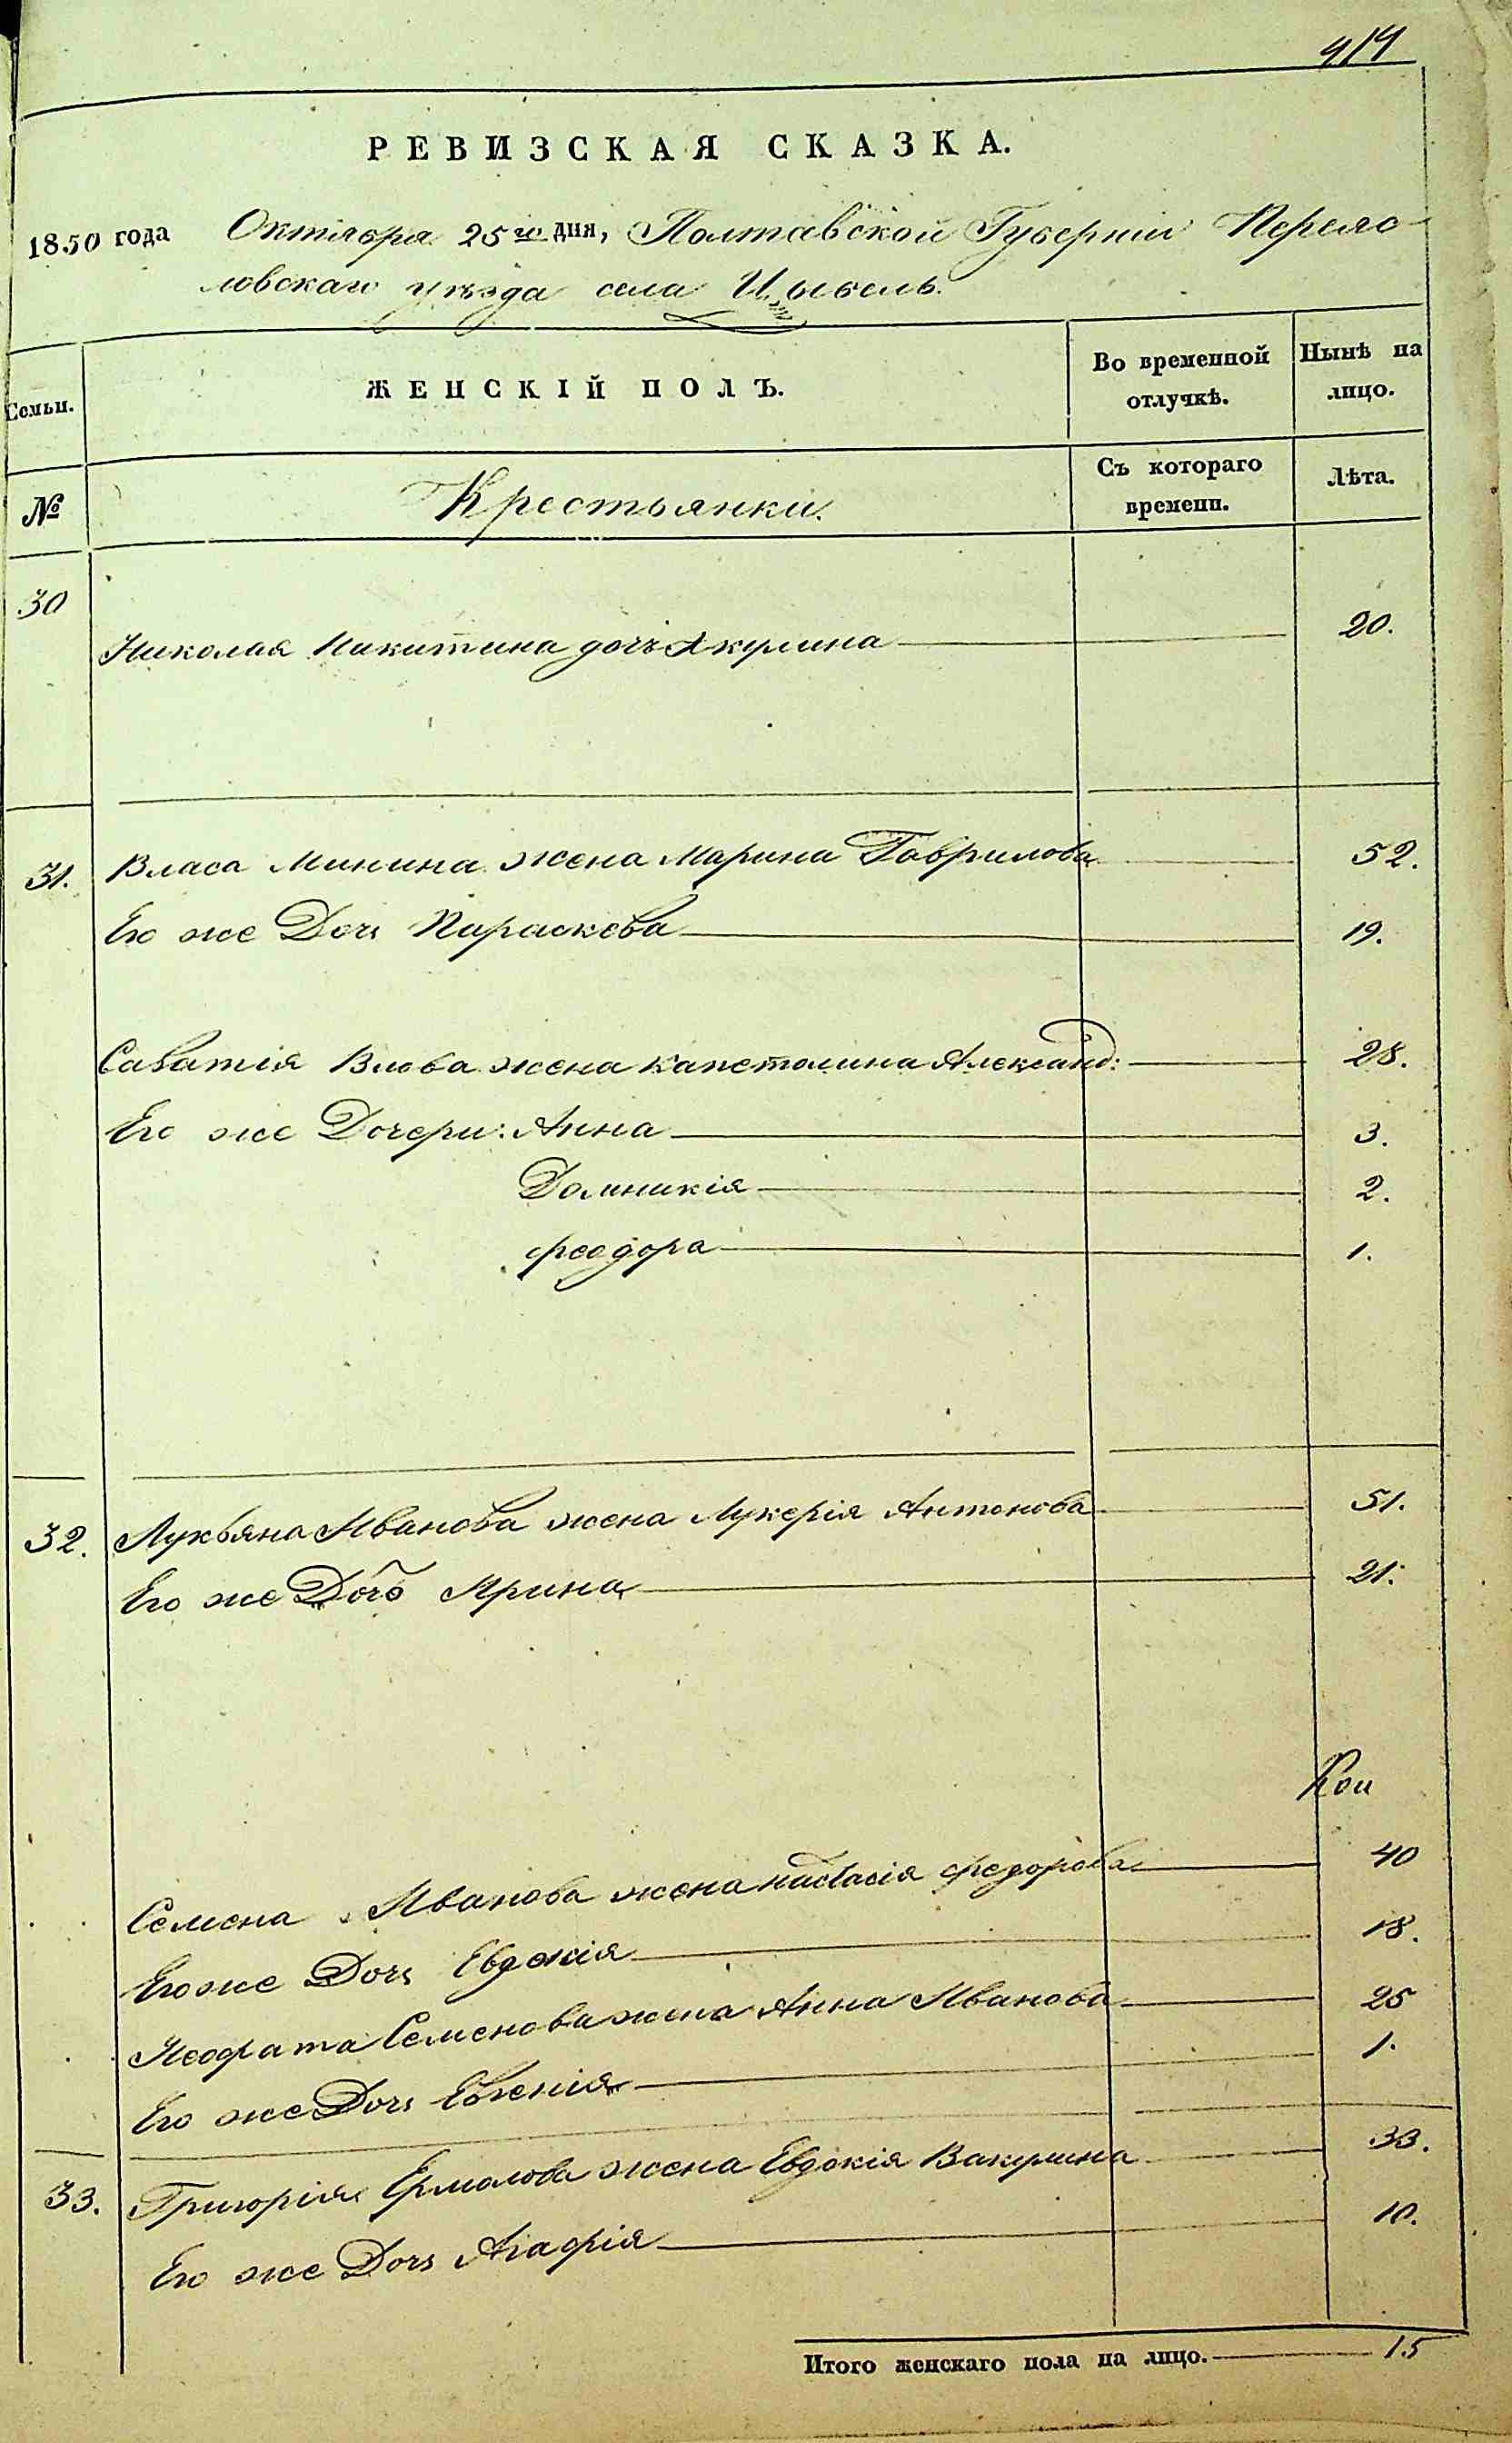 414
РЕВИЗСКАЯ СКАЗКА.
1850 года Октября 25го дня, Полтавской Губернии Переяс-
ловскаго уезда села Цыбель.
Семьи. ЖЕНСКІЙ ПОЛЪ. Во временной отлучкѣ. Нынѣ на лицо.
№ Крестьянки. Съ котораго времени. Лѣта.
30
Николая Никитина дочь Акулина 20.
31. Власа Минина жена Марина Гаврилова 52.
Его же Дочь Параскева 19.
Саватія Власова жена Капетолина Александ: 28.
Его же Дочери: Анна 3.
Домникія 2.
феодора 1.
32. Лукьяна Иванова жена Лукерія Антонова 51.
Его же Дочь Ирина 21.
Семена Иванова жена настасія федорова 40
Его же Дочь Евдокія 18.
Неофита Семенова жена Анна Иванова 25
Его же Дочь Евгенія 1.
33. Григорія Ермолова жена Евдокія Вакулина 33.
Его же Дочь Агафія 10.
Итого женскаго пола на лицо. 15